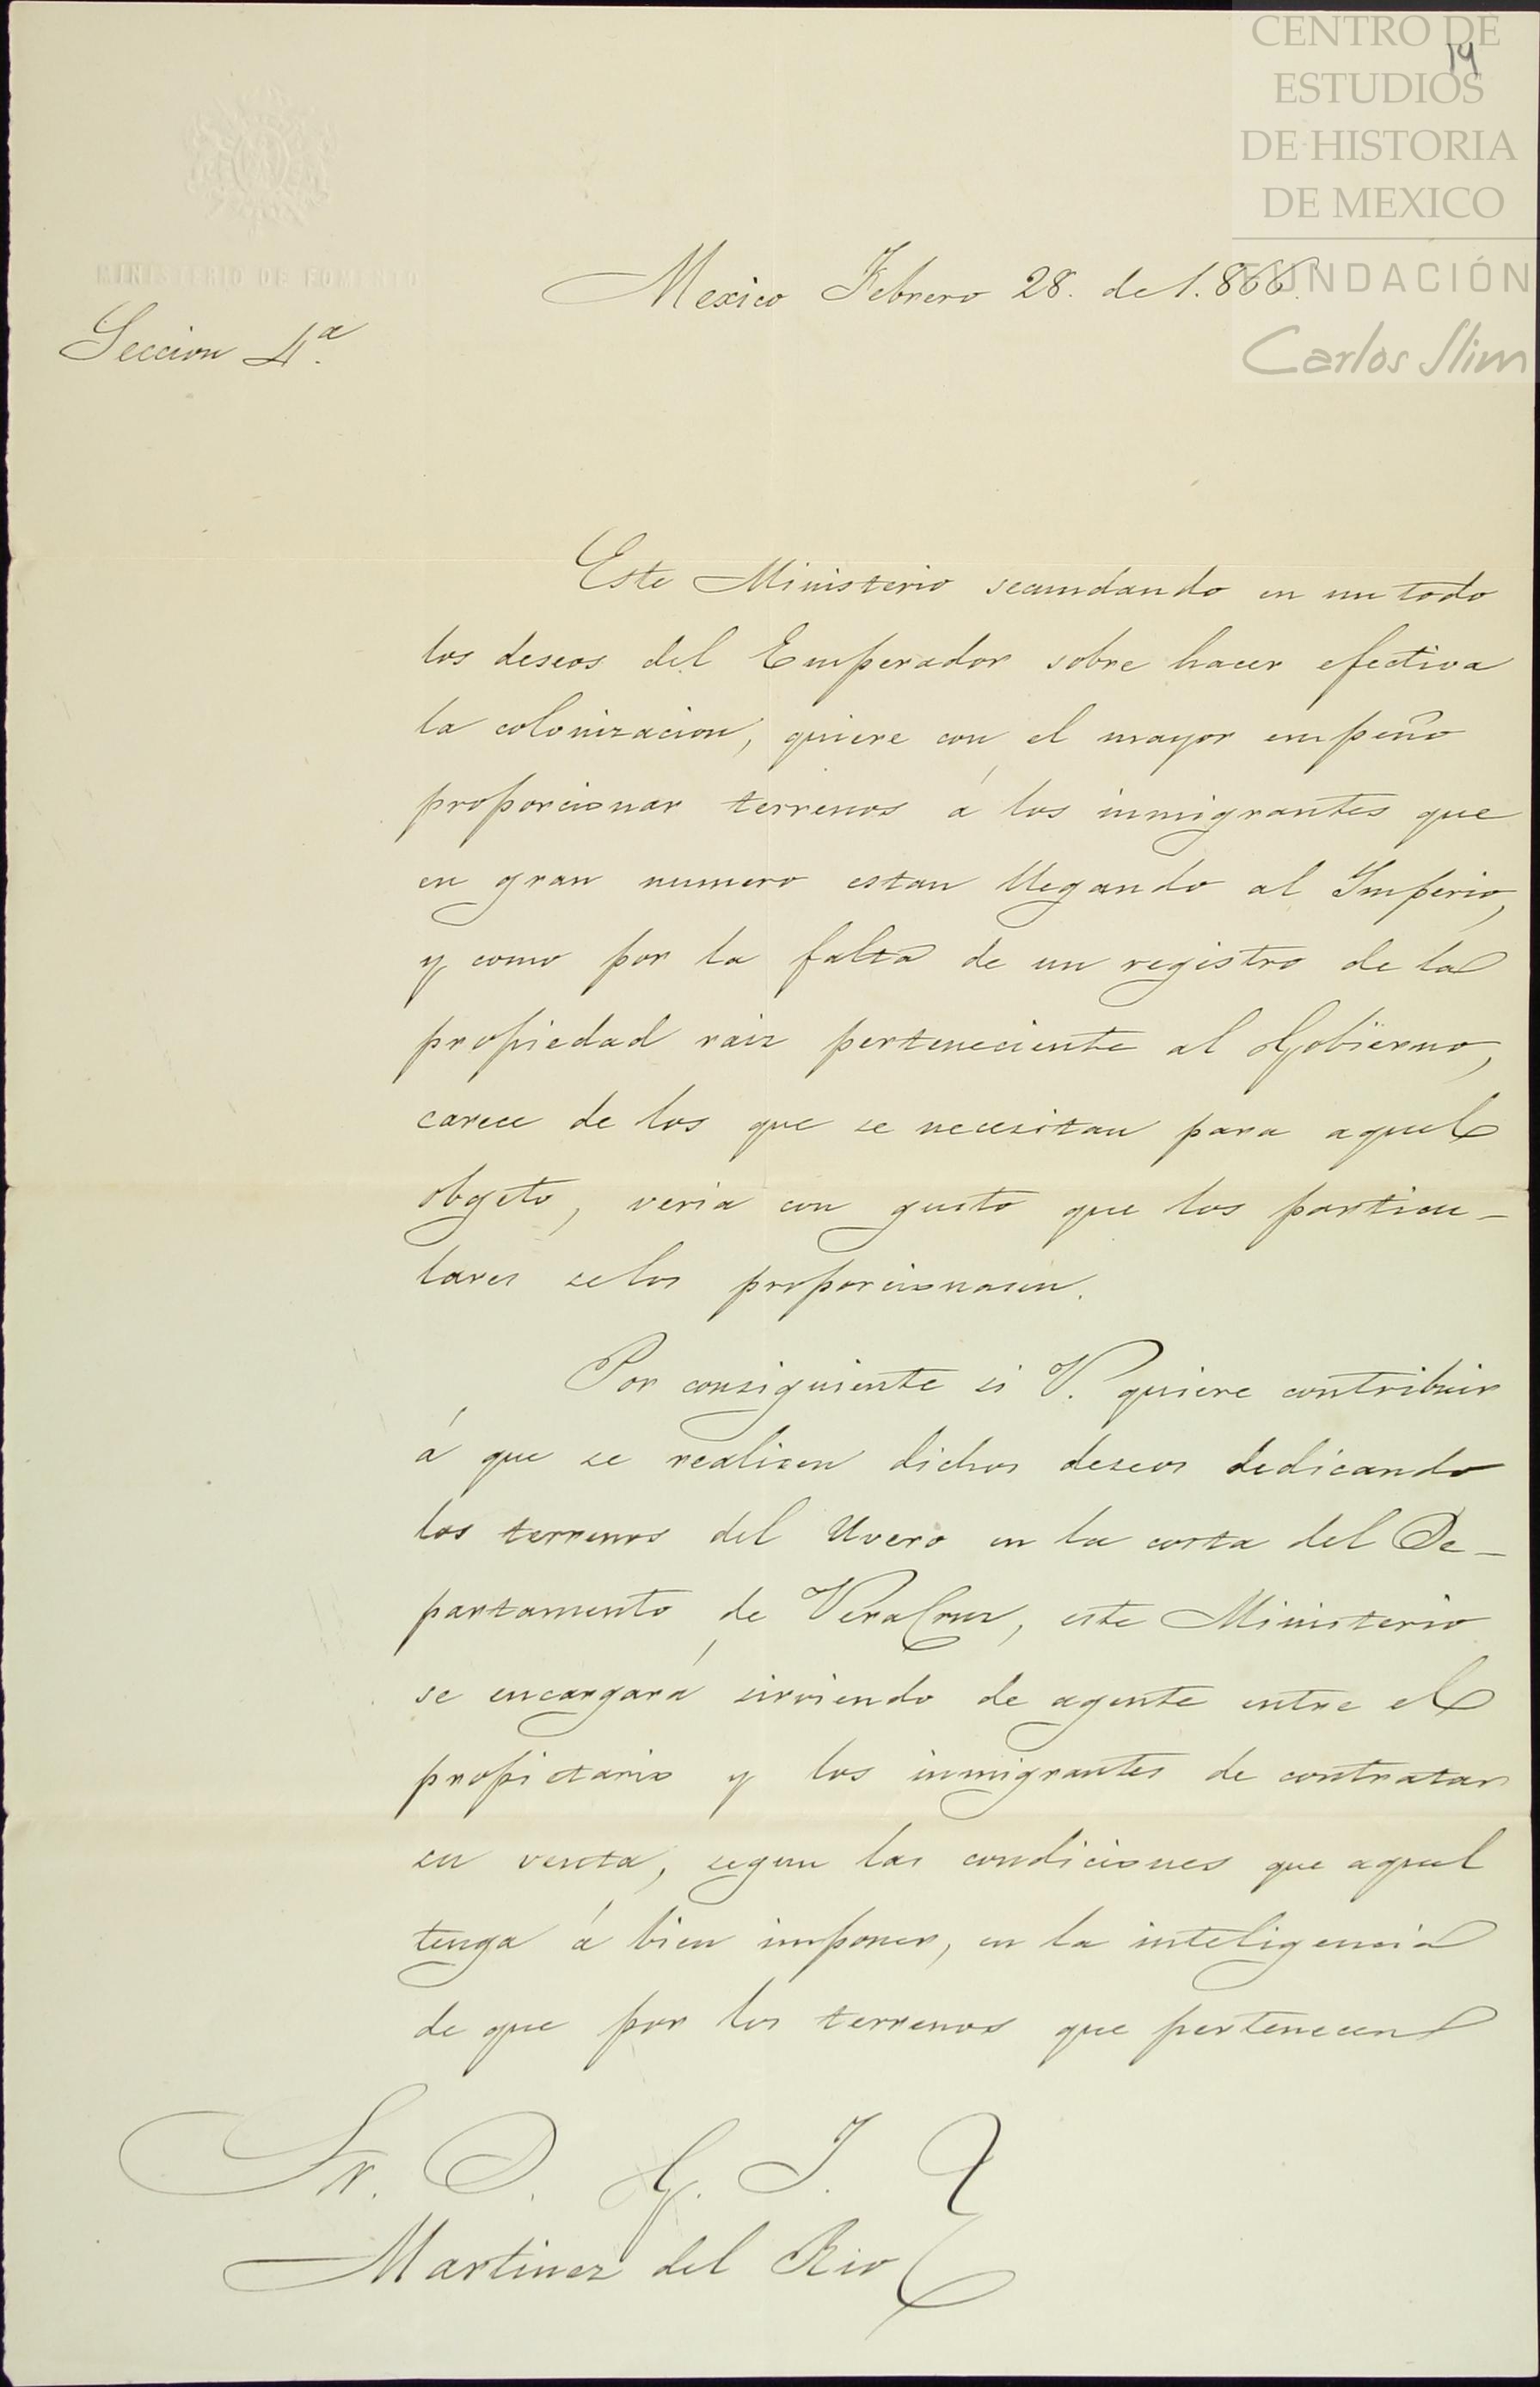 CENTRO DE
ESTUDIOS
DE HISTORIA
DE MEXICO
FUNDACIÓN
Carlos Slim
14
MINISTERIO DE FOMENTO
Mexico Febrero 28. de 1.866.
Seccion 4ª.
Este Ministerio secundando en un todo
los deseos del Emperador sobre hacer efectiva
la colonizacion, quiere con el mayor empeño
proporcionar terrenos á los inmigrantes que
en gran numero estan llegando al Imperio,
y como por la falta de un registro de la
propiedad raiz perteneciente al Gobierno,
carece de los que se necesitan para aquel
obgeto, veria con gusto que los particu-
lares se los proporcionasen.
Por consiguiente si V. quiere contribuir
á que se realicen dichos deseos dedicando
los terrenos del Uvero en la costa del De-
partamento de VeraCruz, este Ministerio
se encargará sirviendo de agente entre el
propietario y los inmigrantes de contratar
su venta, segun las condiciones que aquel
tenga á bien imponer, en la inteligencia
de que por los terrenos que pertenecen
Sr. D. G. J.
Martinez del Rio